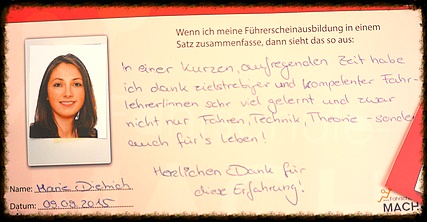 Wenn ich meine Führerscheinausbildung in einem
Satz zusammenfasse, dann sieht das so aus:
In einer kurzen, aufregenden Zeit habe
ich dank zielstrebiger und kompetenter Fahr-
lehrer/innen sehr viel gelernt und zwar
nicht nur Fahren, Technik, Theorie - sondern
auch für's Leben!
Herzlichen Dank für
diese Erfahrung!
Name: Marie Dietrich
Datum: 09.09.2015
MACH